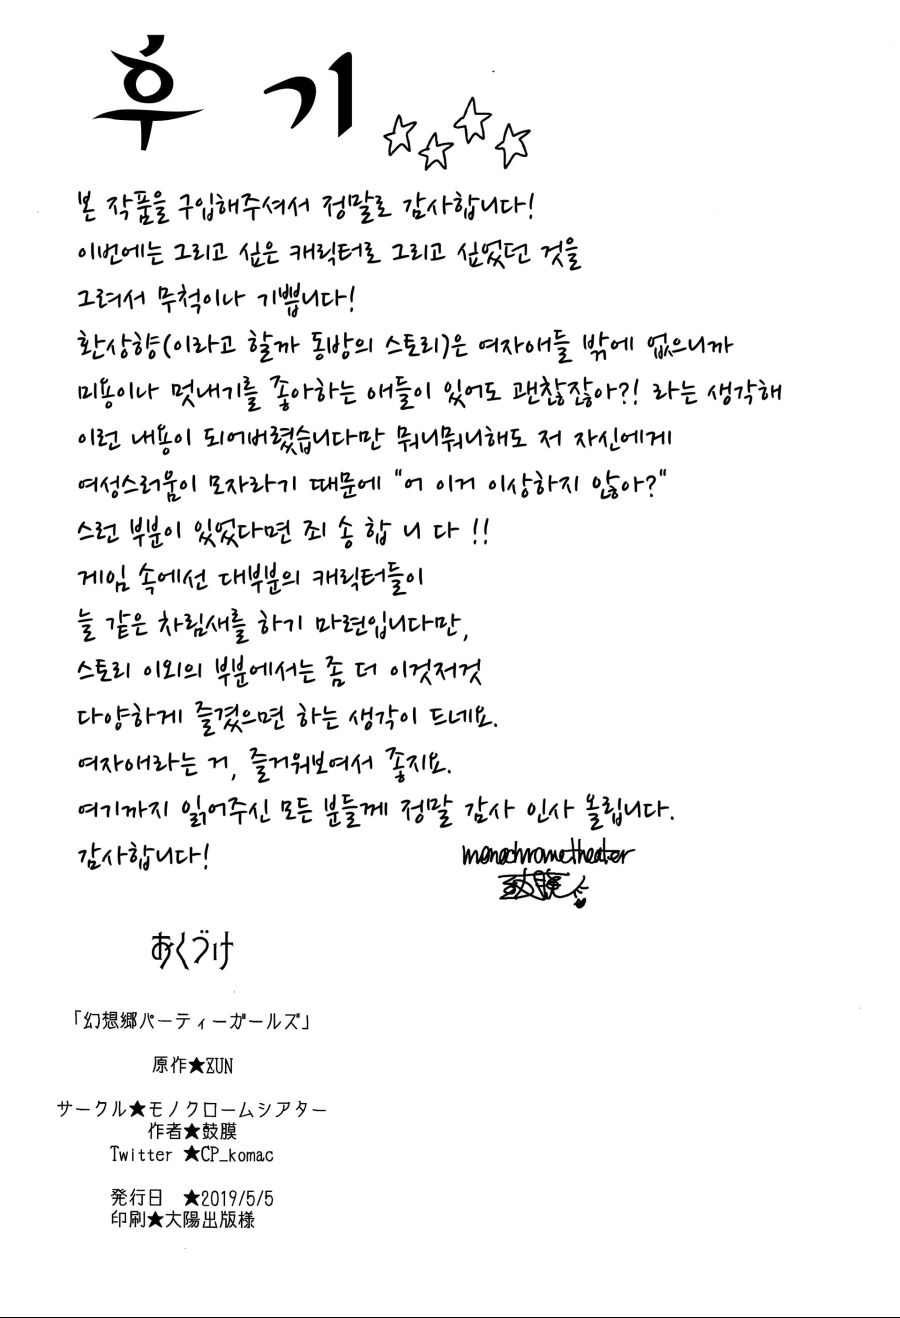 후기
본 작품을 구입해주셔서 정말로 감사합니다!
이번에는 그리고 싶은 캐릭터로 그리고 싶었던 것을
그려서 무척이나 기쁩니다!
환상향(이라고 할까 동방의 스토리)은 여자애들 밖에 없으니까
미용이나 멋내기를 좋아하는 애들이 있어도 괜찮잖아?! 라는 생각해
이런 내용이 되어버렸습니다만 뭐니뭐니해도 저 자신에게
여성스러움이 모자라기 때문에 "어 이거 이상하지 않아?"
스런 부분이 있었다면 죄 송 합 니 다 !!
게임 속에선 대부분의 캐릭터들이
늘 같은 차림새를 하기 마련입니다만,
스토리 이외의 부분에서는 좀 더 이것저것
다양하게 즐겼으면 하는 생각이 드네요.
여자애라는 거, 즐거워보여서 좋지요.
여기까지 읽어주신 모든 분들께 정말 감사 인사 올립니다.
감사합니다!
monochrometheater
鼓膜
おくづけ
「幻想郷パーティーガールズ」
原作★ZUN
サークル★モノクロームシアター
作者★鼓膜
Twitter ★CP_komac
発行日 ★2019/5/5
印刷★大陽出版様